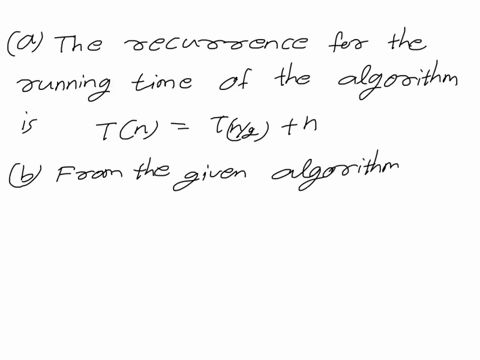 (a) The recurrence for the
running time of the algorithm
is T(n) = T(n/2) + n
(b) From the given algorithm